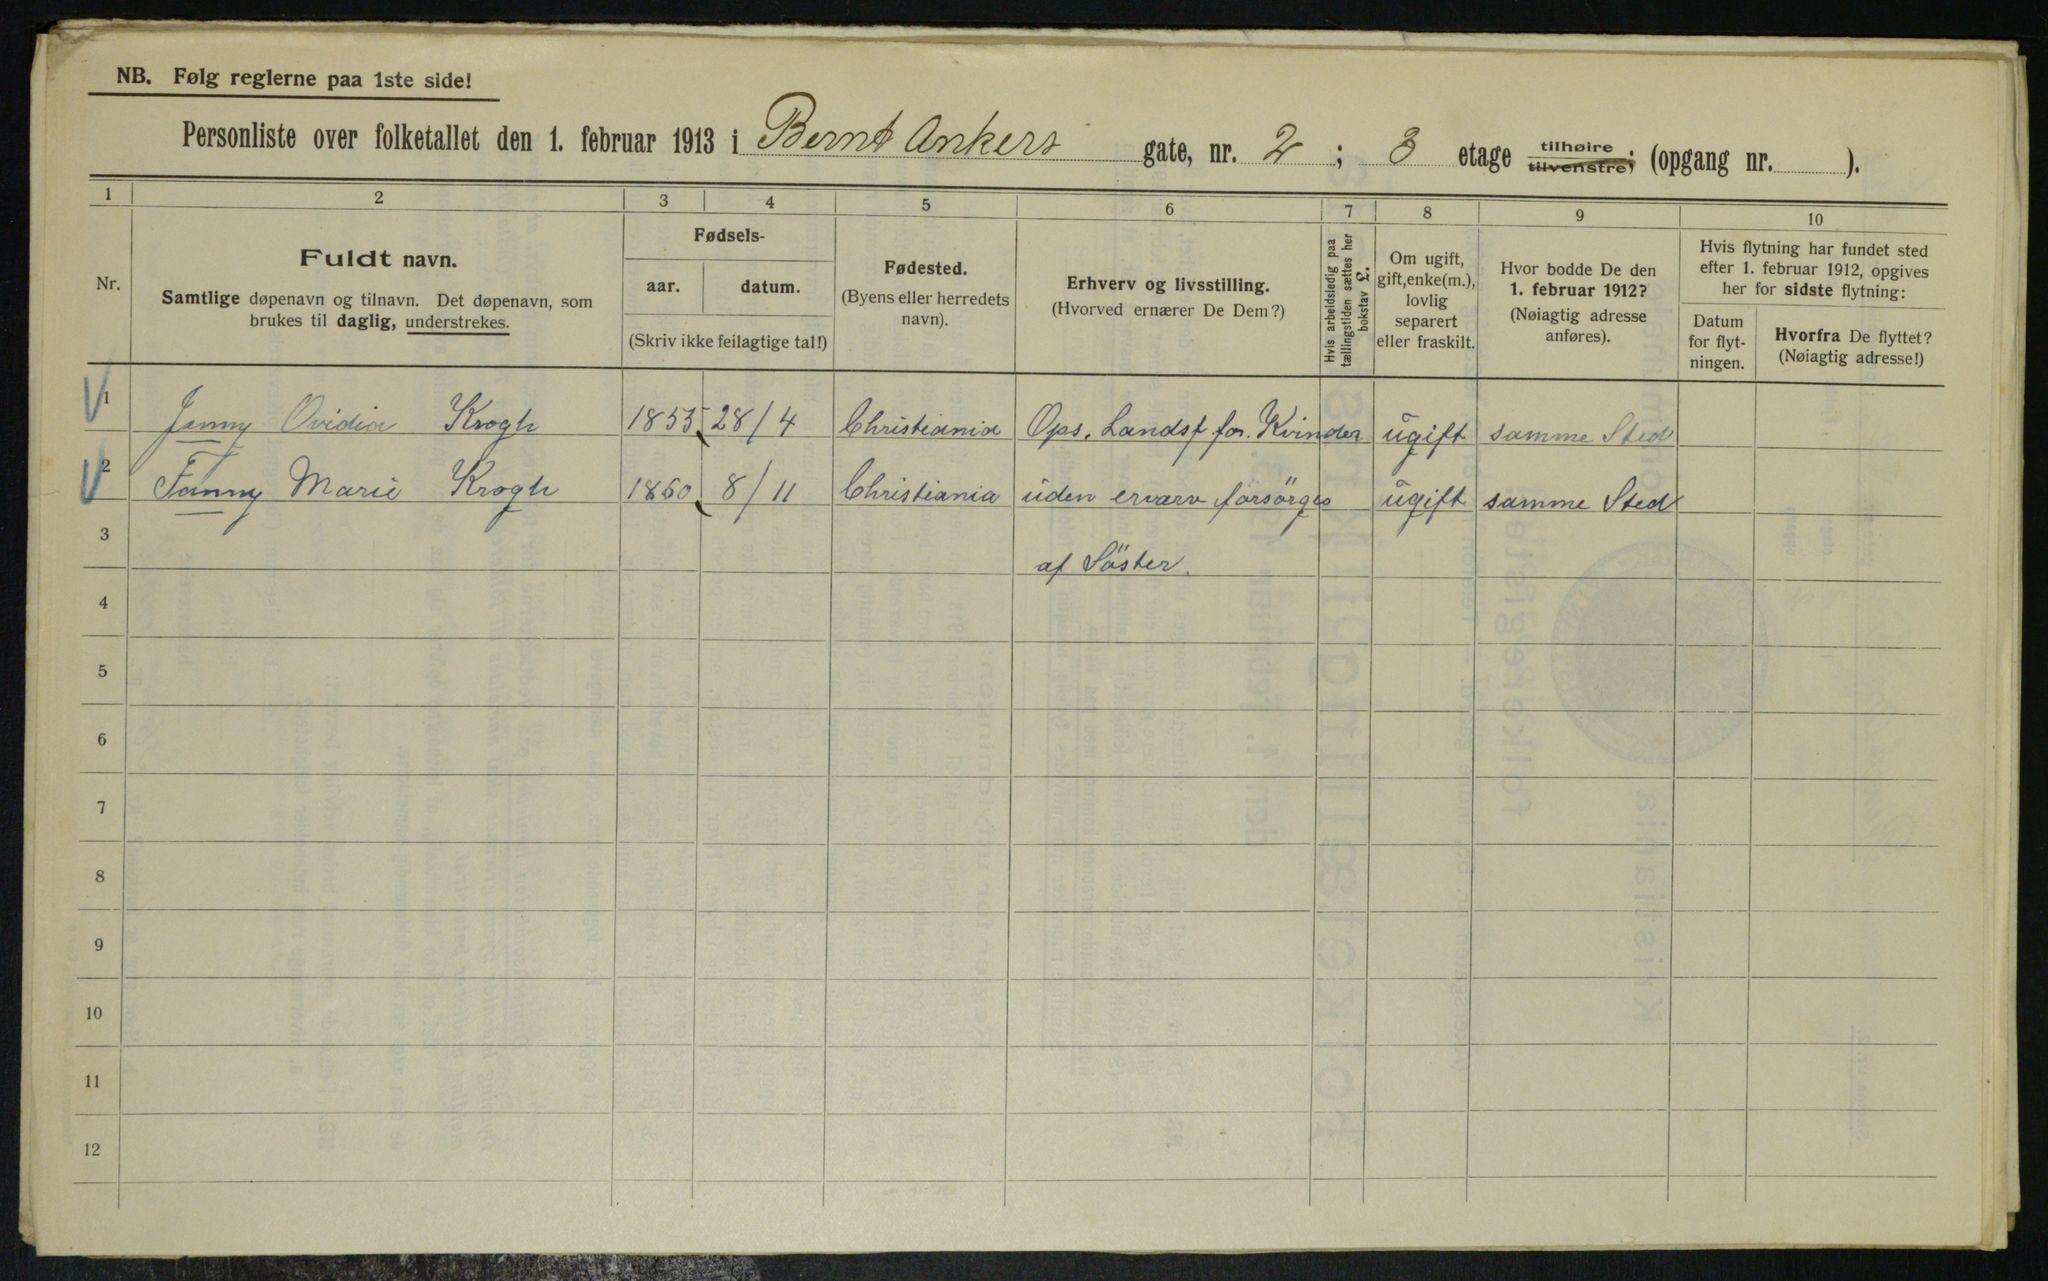 NB. Følg reglerne paa 1ste side!
Personliste over folketallet den 1. februar 1913 i Bernt Ankers gate, nr. 2 ; 3 etage tilhøire tilvenstre; (opgang nr. ).
1 2 3 4 5 6 7 8 9 10
Nr.
Fuldt navn.
Samtlige døpenavn og tilnavn. Det døpenavn, som
brukes til daglig, understrekes.
Fødsels-
aar. datum.
(Skriv ikke feilagtige tal!)
Fødested.
(Byens eller herredets
navn).
Erhverv og livsstilling.
(Hvorved ernærer De Dem?)
Hvis arbeidsledig paa
tællingstiden sættes her
bokstav L.
Om ugift,
gift, enke(m.),
lovlig
separert
eller fraskilt.
Hvor bodde De den
1. februar 1912?
(Nøiagtig adresse
anføres).
Hvis flytning har fundet sted
efter 1. februar 1912, opgives
her for sidste flytning:
Datum
for flyt-
ningen.
Hvorfra De flyttet?
(Nøiagtig adresse!)
1 Jenny Ovidia Krogh 1855 28/4 Christiania Ops. Landsf. for. Kvinder ugift samme Sted
2 Fanny Marie Krogh 1860 8/11 Christiania uden erværv forsörges ugift samme Sted
3 af Söster.
4
5
6
7
8
9
10
11
12